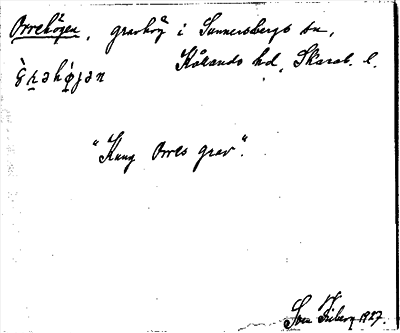 Orrehögen, gravhög i Sunnersbergs sn,
Kållands hd, Skarab. l.
"Kung Orres grav".
Sven Friberg 1927.